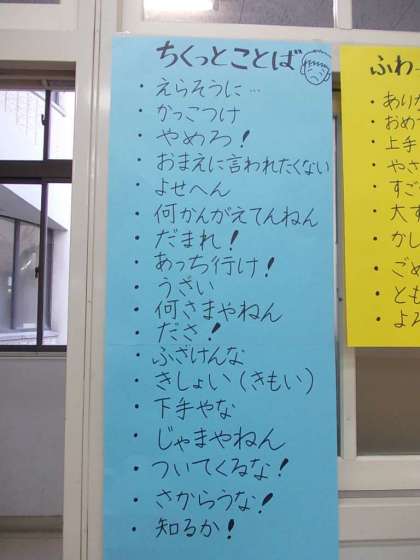 ちくっとことば
・えらそうに…
・かっこつけ
・やめろ！
・おまえに言われたくない
・よせへん
・何かんがえてんねん
・だまれ！
・あっち行け！
・うざい
・何さまやねん
・ださ！
・ふざけんな
・きしょい（きもい）
・下手やな
・じゃまやねん
・ついてくるな！
・さからうな！
・知るか！
ふわっ
・ありが
・おめで
・上手
・やさ
・すご
・大す
・かし
・ごめ
・とも
・よろ